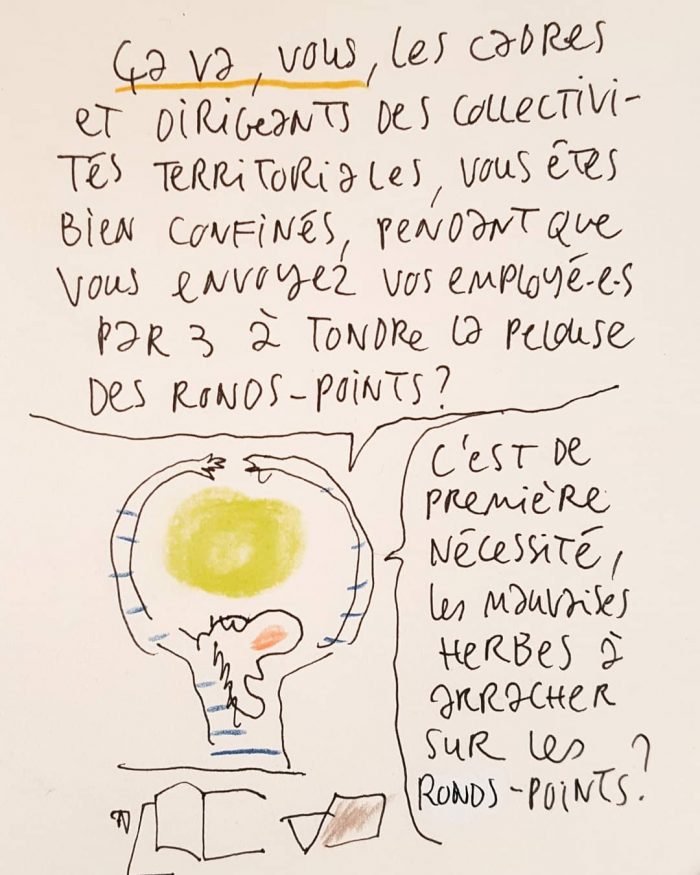 Ça va, vous, les cadres
et dirigeants des collectivi-
tés territoriales, vous êtes
bien confinés, pendant que
vous envoyez vos employé-e-s
par 3 à tondre la pelouse
des ronds-points ?
C'est de
première
nécessité,
les mauvaises
herbes à
arracher
sur les
ronds-points ?